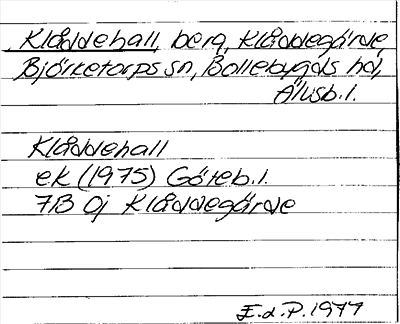 Klåddehall, berg, Klåddegärde,
Björketorps sn, Bollebygds hd,
Älvsb.l.
Klåddehall
ek (1975) Göteb.l.
7B 0j Klåddegärde
E.d.P. 1977